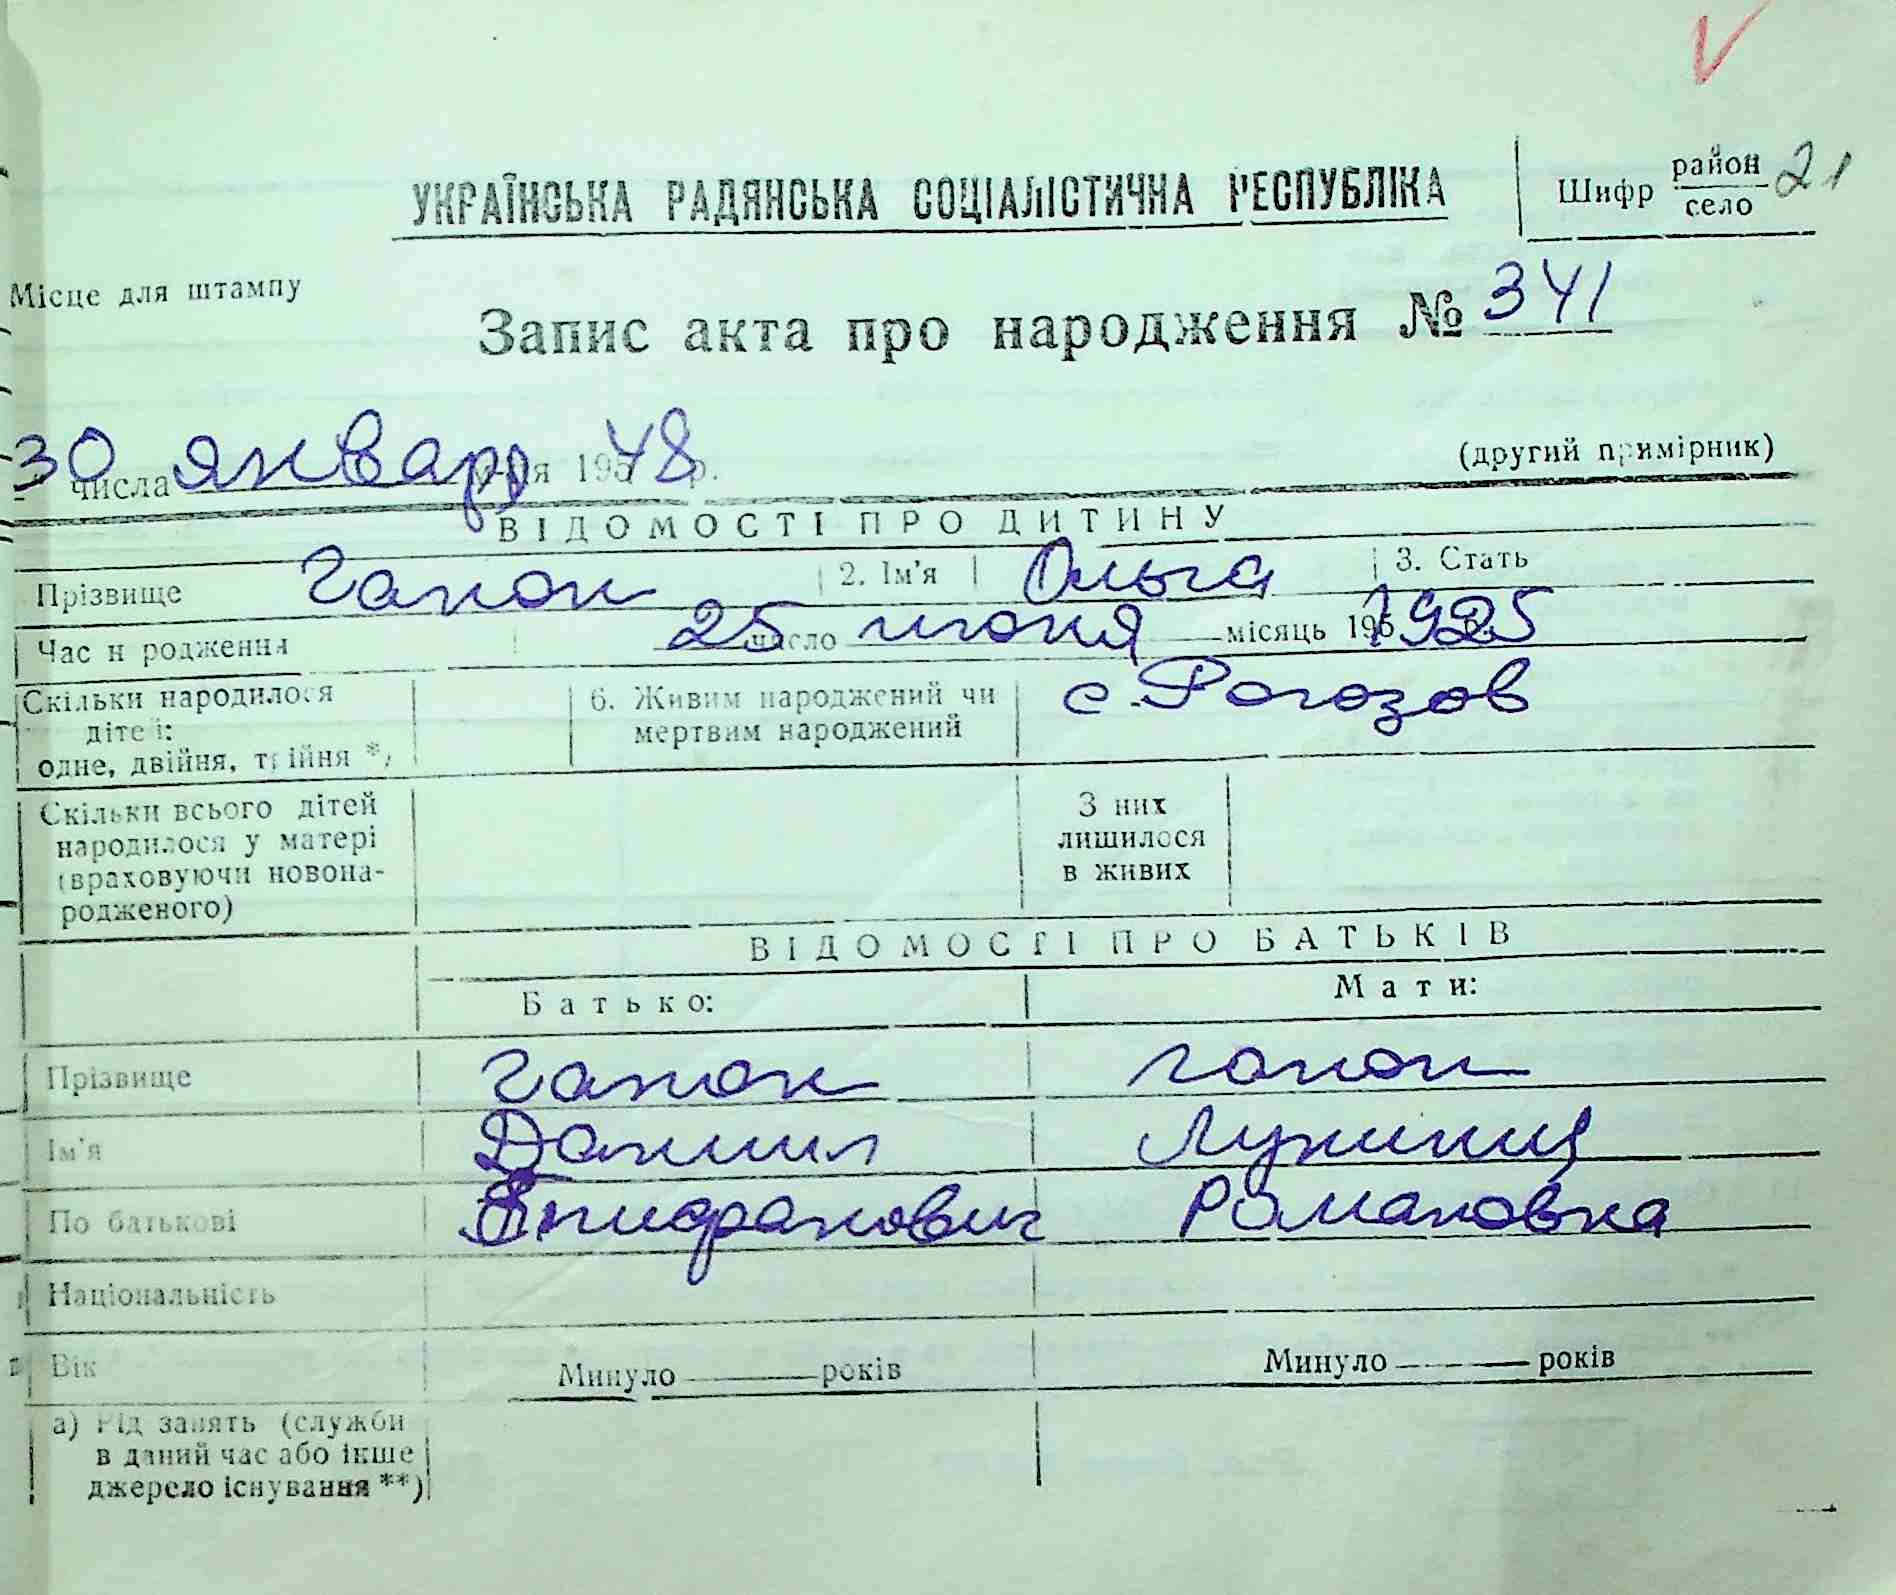 УКРАЇНСЬКА РАДЯНСЬКА СОЦІАЛІСТИЧНА РЕСПУБЛІКА
Шифр район 21
село
Місце для штампу
Запис акта про народження № 341
30 числа января м-ця 195 48 р.
(другий примірник)
ВІДОМОСТІ ПРО ДИТИНУ
Прізвище Гапон 2. Ім'я Ольга 3. Стать
Час народження 25 число июня місяць 195 1925
Скільки народилося дітей: одне, двійня, трійня *)
6. Живим народжений чи мертвим народжений с. Рогозов
Скільки всього дітей народилося у матері (враховуючи новонародженого)
З них лишилося в живих
ВІДОМОСТІ ПРО БАТЬКІВ
Батько: Мати:
Прізвище Гапон Гапон
Ім'я Даниил
По батькові Епифранович Романовна
Національність
Вік Минуло років Минуло років
а) Рід занять (служби
в даний час або інше
джерело існування **)